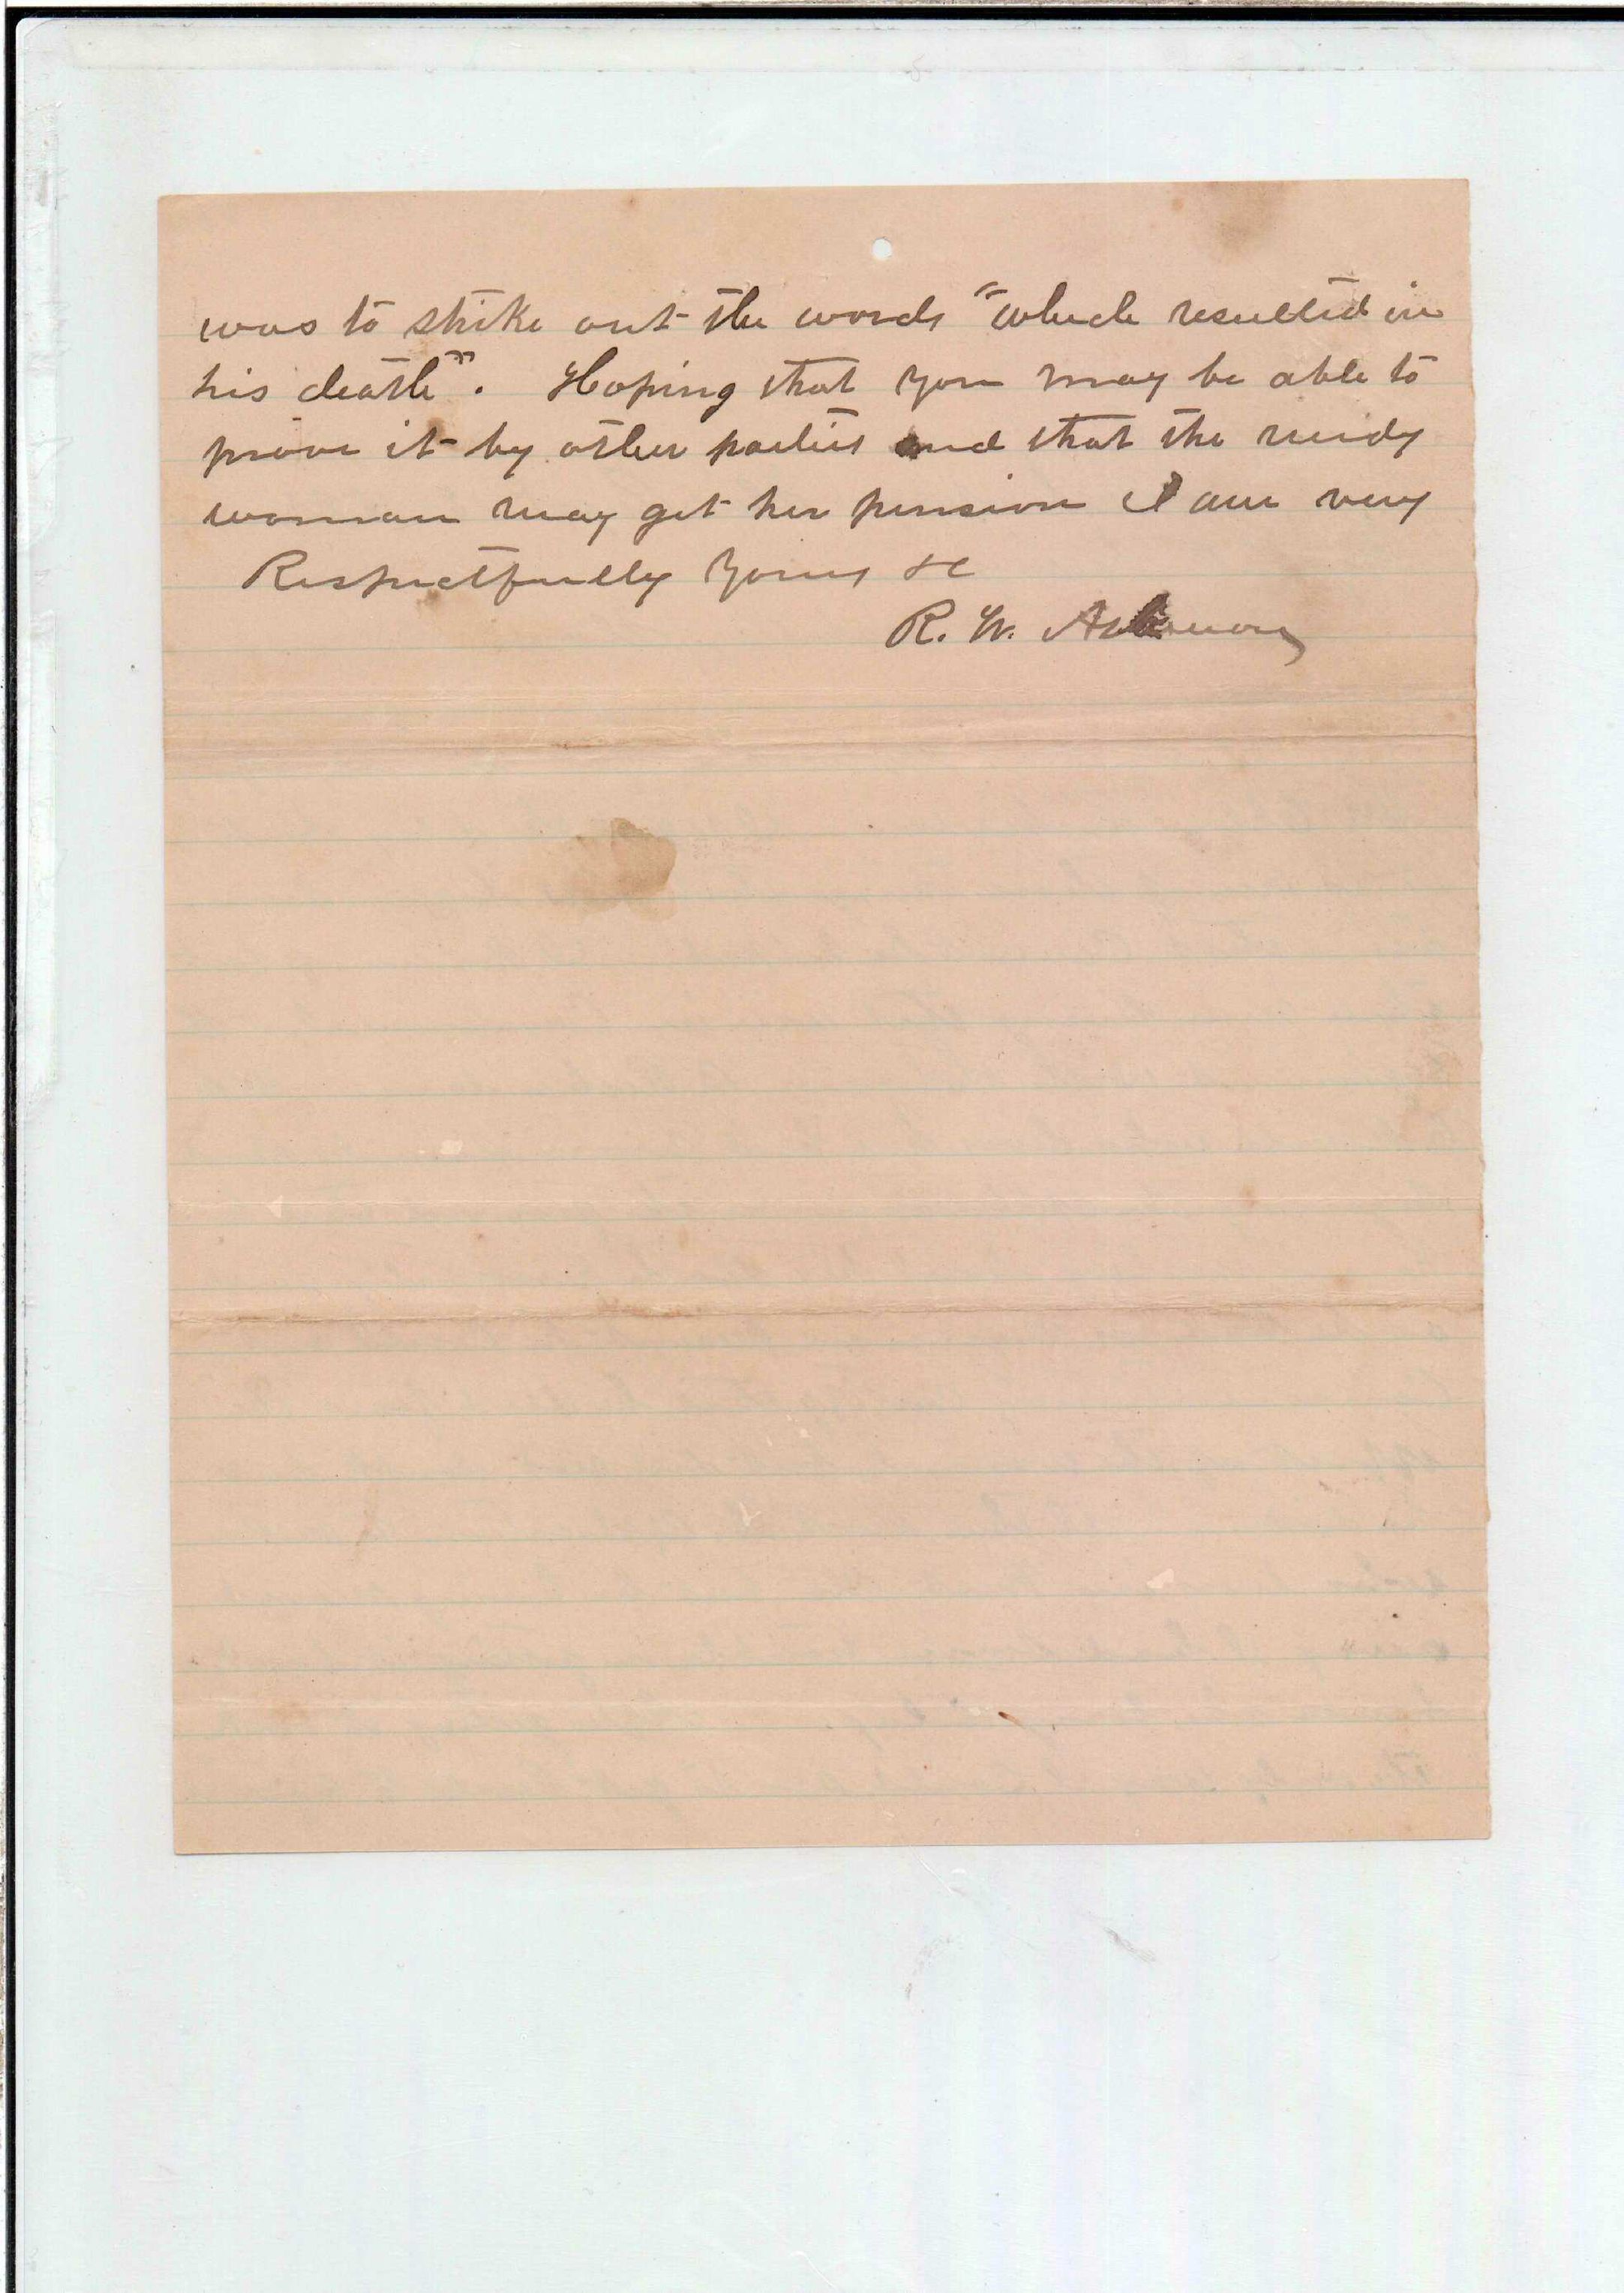 was to strike out the words "which resulted in
his death". Hoping that you may be able to
prove it by other parties and that the needy
woman may get her pension I am very
Respectfully Yours &c
R. W.